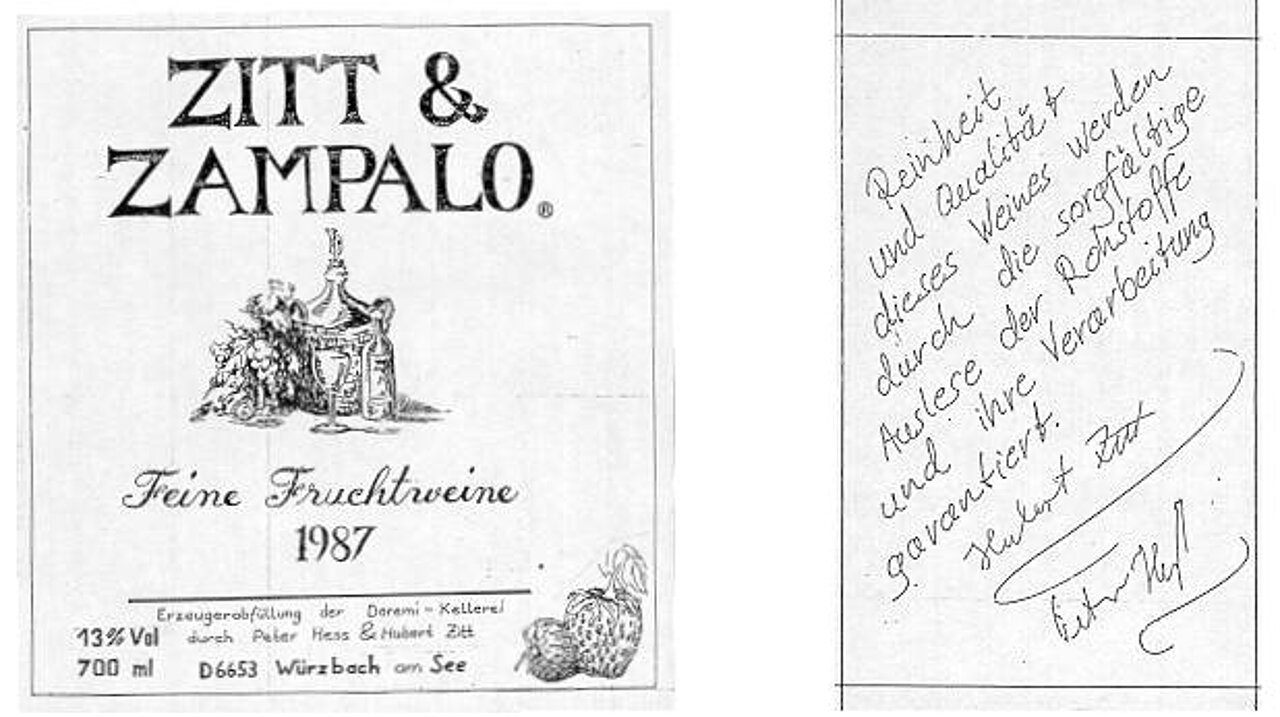 ZITT &
ZAMPALO®
Feine Fruchtweine
1987
Erzeugerabfüllung der Doremi-Kellerei
13% Vol durch Peter Hess & Hubert Zitt
700 ml D6653 Würzbach am See
Reinheit
und Qualität
dieses Weines werden
durch die sorgfältige
Auslese der Rohstoffe
und ihre Verarbeitung
garantiert.
Hubert Zitt
Peter Hess